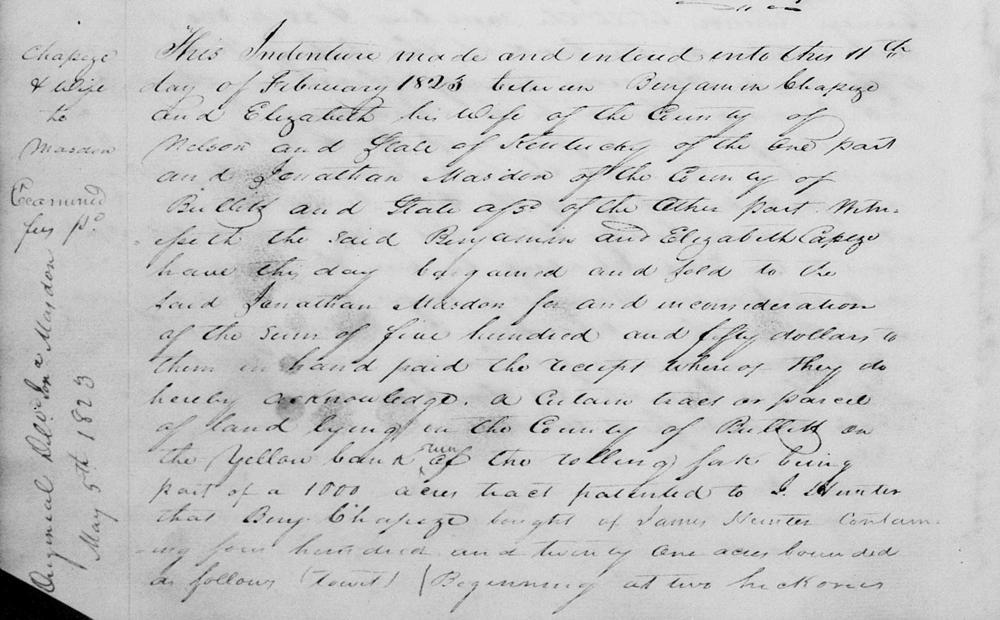 Chapeze
& wife
to
Masden
Examined
fees pd
Original Del. to Jona Masden
May 5th 1823
This Indenture made and entered into this 11th
day of February 1823 between Benjamin Chapeze
and Elizabeth his Wife of the County of
Nelson and State of Kentucky of the one part
and Jonathan Masden of the County of
Bullitt and State afsd of the other part Witn-
esseth the said Benjamin and Elizabeth Capeze
have this day bargained and sold to the
said Jonathan Masden for and in consideration
of the sum of five hundred and fifty dollars to
them in hand paid the receipt whereof they do
hereby acknowledge. a Certain tract or parcel
of land lying in the County of Bullitt on
the Yellow bank run of the rolling fork being
part of a 1000 acres tract patented to J. Hunter
that Benj. Chapeze bought of James Hunter Contain-
-ing four hundred and twenty one acres bounded
as follows (towit) (Beginning at two hickories